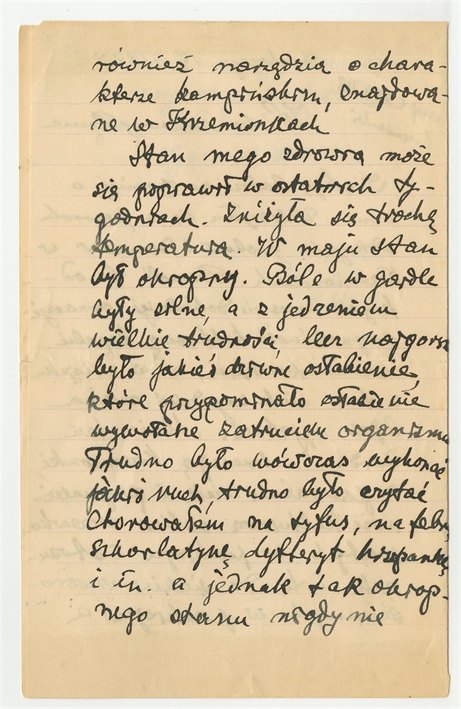 również narzędzia o chara-
kterze kampińskim, znajdowa-
ne w Krzemionkach
Stan mego zdrowia może
się poprawił w ostatnich ty-
godniach. Zniżyła się trochę
temperatura. W maju stan
był okropny. Bóle w gardle
były silne, a z jedzeniem
wielkie trudności, lecz najgorsze
było jakieś dziwne osłabienie,
które przypominało osłabienie
wywołane zatruciem organizmu
Trudno było wówczas wykonać
jakiś ruch, trudno było czytać
Chorowałem na tyfus, na febrę
szkarlatynę, dyfteryt hiszpankę
i in. a jednak tak okrop-
nego stanu nigdy nie